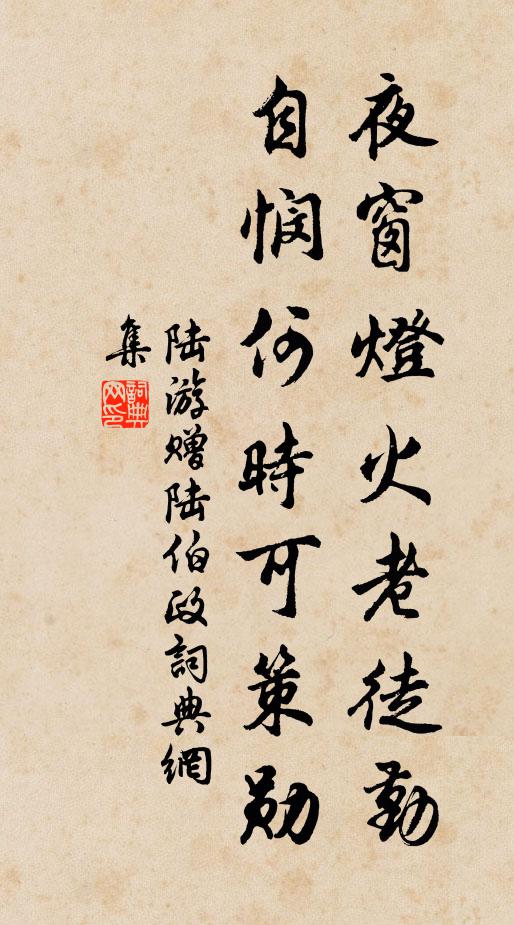 夜窗燈火老徒勤
自悯何時可策勛
陆游赠陆伯政詞典網
集
詞典網印